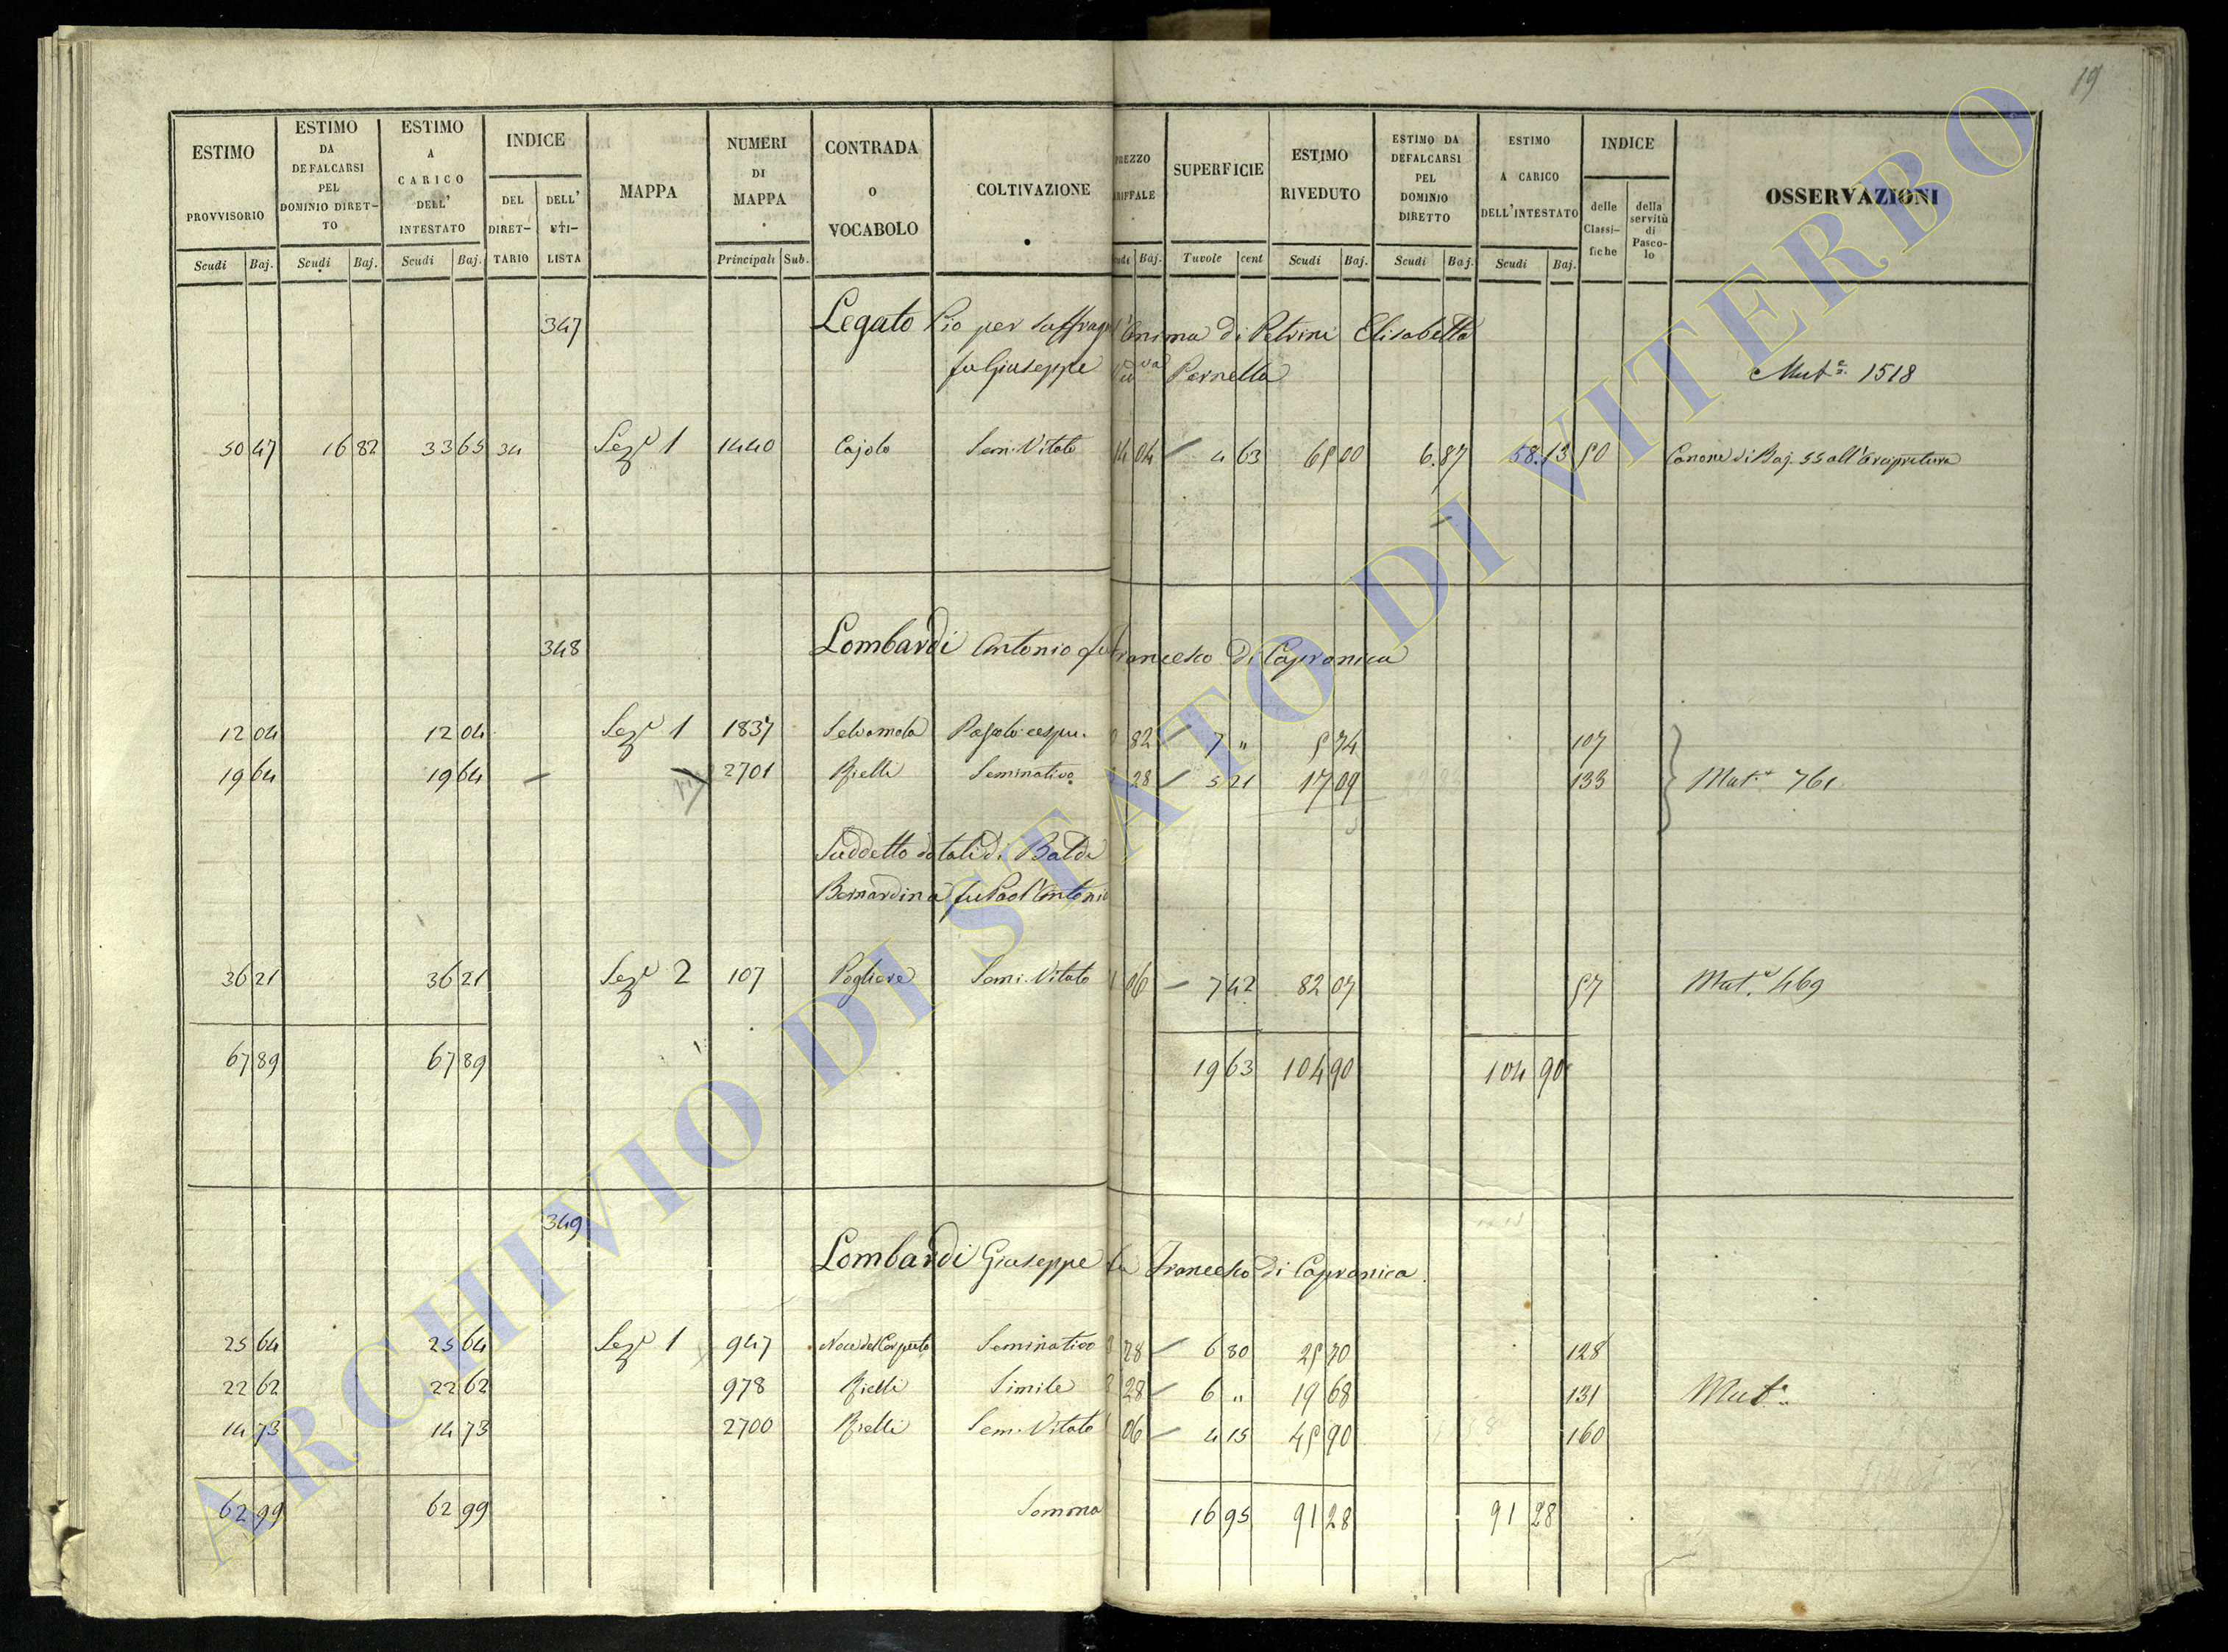 19
ESTIMO PROVVISORIO | ESTIMO DA DEFALCARSI PEL DOMINIO DIRET-TO | ESTIMO A CARICO DELL' INTESTATO | INDICE | MAPPA | NUMERI DI MAPPA | CONTRADA O VOCABOLO | COLTIVAZIONE | PREZZO TARIFFALE | SUPERFICIE | ESTIMO RIVEDUTO | ESTIMO DA DEFALCARSI PEL DOMINIO DIRETTO | ESTIMO A CARICO DELL'INTESTATO | INDICE | OSSERVAZIONI
DEL DIRET-TARIO | DELL' UTI-LISTA | delle Classi-fiche | della servitù di Pasco-lo
Scudi | Baj. | Scudi | Baj. | Scudi | Baj. | Principali | Sub. | Scudi | Baj. | Tavole | cent | Scudi | Baj. | Scudi | Baj. | Scudi | Baj.
347 Legato Pio per Suffrag l'Anima di Petrini Elisabetta
fu Giuseppe Vedva Pernella
Muta 1518
50 47 | 16 82 | 33 65 | 34 | Seze 1 | 1440 | Cajolo | Sem. Vitato | 14 04 | 4 63 | 65 00 | 6.87 | 58.13 | 50 | Canone di Baj. 55 all'Arcipretura
348 Lombardi Antonio fu Francesco di Capranica
12 04 | 12 04 | Seze 1 | 1837 | Selvamola | Pascolo cespu. | 82 | 7 " | 5 74 | 107
19 64 | 19 64 | 2701 | Rielli | Seminativo | 28 | 5 21 | 17 09 | 133 | Muta 761
Suddetto dotali di Baldi
Bernardina fu Paol'Antonio
36 21 | 36 21 | Seze 2 | 107 | Pogliere | Semi. Vitato | 06 | 7 42 | 82 07 | 57 | Muta 469
67 89 | 67 89 | 19 63 | 104 90 | 104 90
349
Lombardi Giuseppe fu Francesco di Capranica
25 64 | 25 64 | Seze 1 | 947 | Noce del | Seminativo | 78 | 6 80 | 25 70 | 128
22 62 | 22 62 | 978 | Rielli | Simile | 28 | 6 " | 19 68 | 131 | Muta
14 73 | 14 73 | 2700 | Rielli | Sem. Vitato | 06 | 4 15 | 45 90 | 160
62 99 | 62 99 | Somma | 16 95 | 91 28 | 91 28
ARCHIVIO DI STATO DI VITERBO